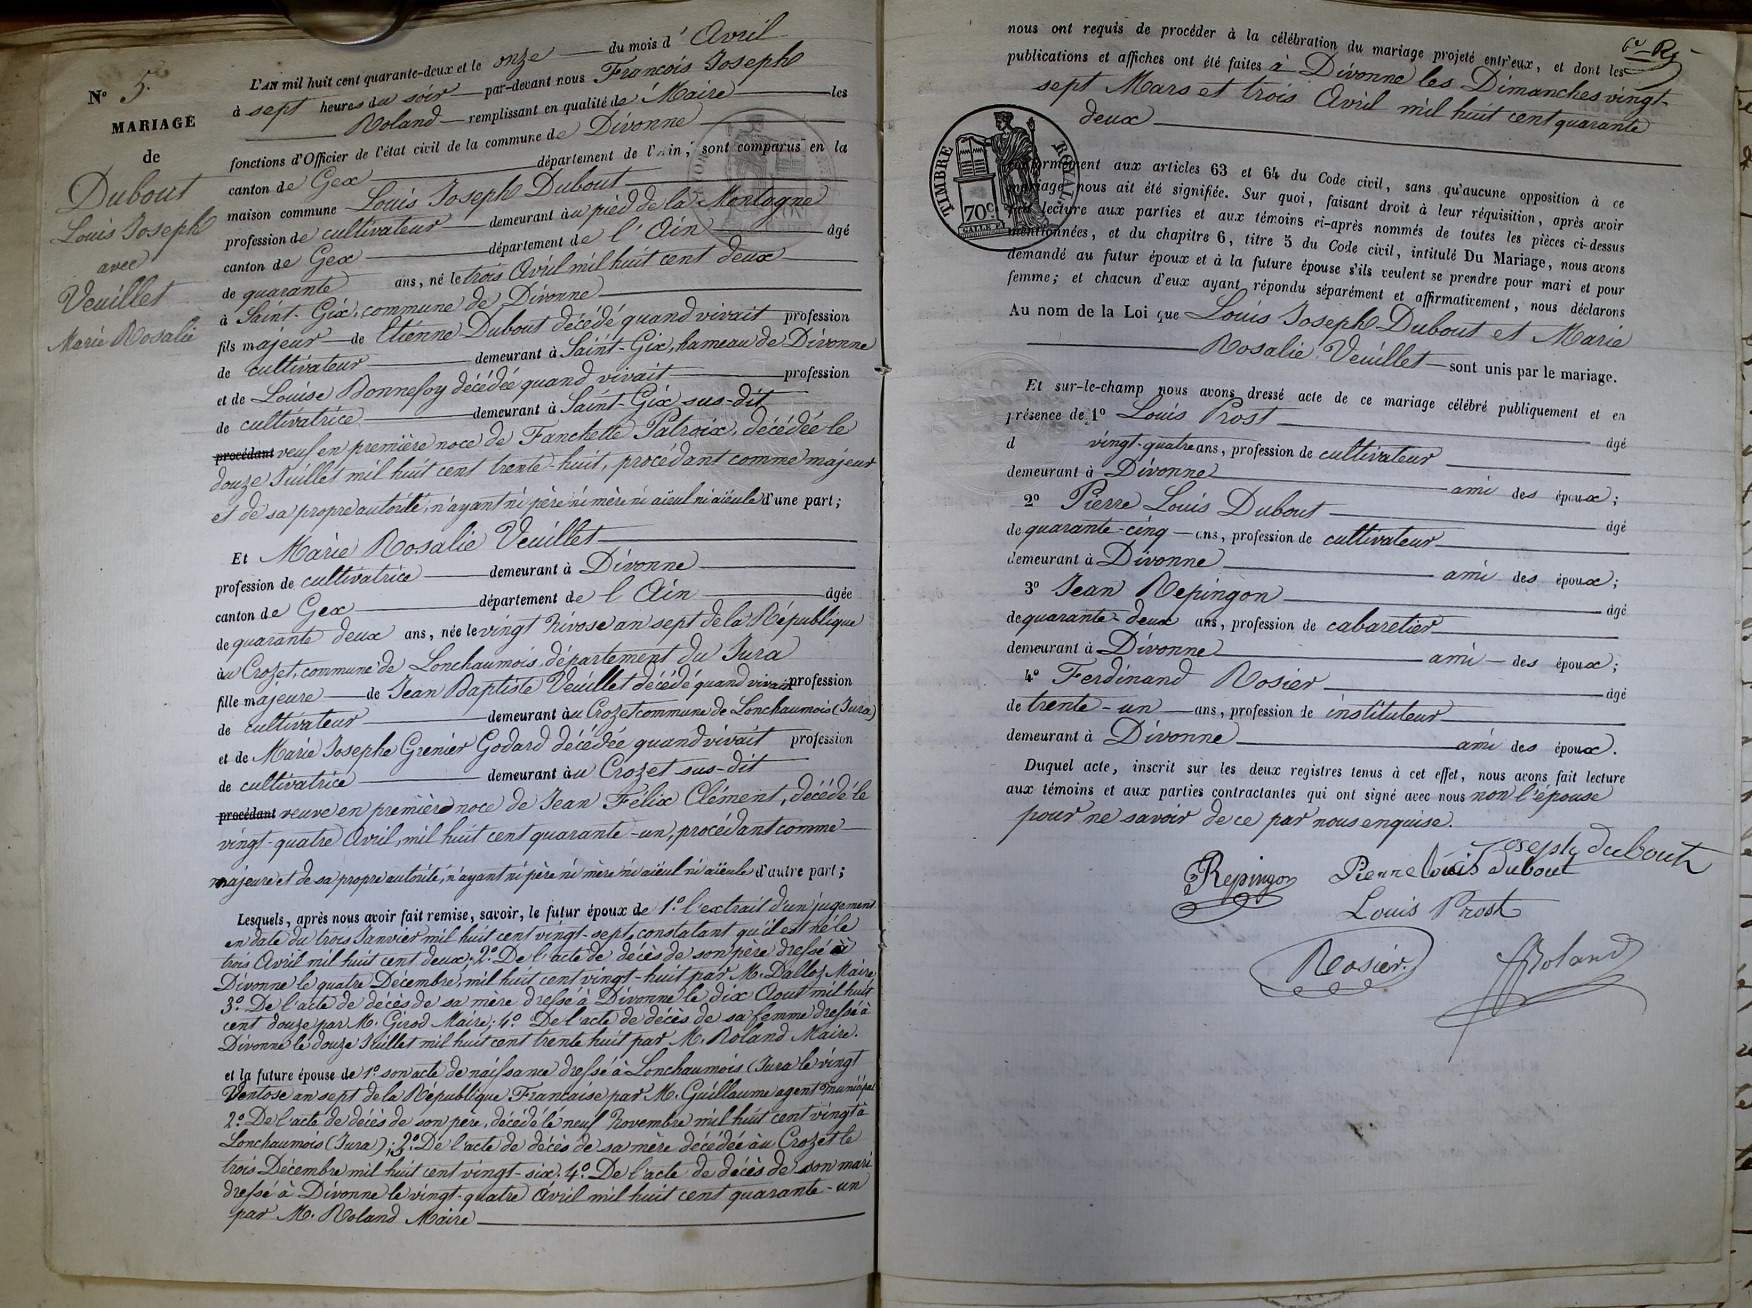 N° 5.
MARIAGE
de
Dubout
Louis Joseph
avec
Veuillet
Marie Rosalie
L'AN mil huit cent quarante-deux et le onze du mois d'Avril
à sept heures du soir par-devant nous François Joseph
Roland remplissant en qualité de Maire les
fonctions d'Officier de l'état civil de la commune de Divonne
canton de Gex département de l'Ain, sont comparus en la
maison commune Louis Joseph Dubout
profession de cultivateur demeurant au pied de la Montagne
canton de Gex département de l'Ain âgé
de quarante ans, né le trois Avril mil huit cent deux
à Saint-Gix, commune de Divonne
fils majeur de Etienne Dubout décédé quand vivait profession
de cultivateur demeurant à Saint-Gix, hameau de Divonne
et de Louise Bonnefoy décédée quand vivait profession
de cultivatrice demeurant à Saint-Gix sus-dit
procédant veuf en première noce de Fanchette Patroix, décédée le
douze Juillet mil huit cent trente-huit, procédant comme majeur
et de sa propre autorité, n'ayant ni père ni mère ni aïeul ni aïeule d'une part;
Et Marie Rosalie Veuillet
profession de cultivatrice demeurant à Divonne
canton de Gex département de l'Ain âgée
de quarante deux ans, née le vingt Nivose an sept de la République
au Crozet, commune de Lonchaumois, département du Jura
fille majeure de Jean Baptiste Veuillet décédé quand vivait profession
de cultivateur demeurant au Crozet commune de Lonchaumois (Jura)
et de Marie Josephe Grenier Godard décédée quand vivait profession
de cultivatrice demeurant au Crozet sus-dit
procédant veuve en première noce de Jean Félix Clément, décédé le
vingt-quatre Avril, mil huit cent quarante-un, procédant comme
majeure et de sa propre autorité, n'ayant ni père ni mère ni aïeul ni aïeule d'autre part;
Lesquels, après nous avoir fait remise, savoir, le futur époux de 1.° l'extrait d'un jugement
en date du trois Janvier mil huit cent vingt-sept, constatant qu'il est né le
trois Avril mil huit cent deux; 2.° De l'acte de décès de son père dressé à
Divonne le quatre Décembre, mil huit cent vingt-huit par M. Dalloz Maire
3.° De l'acte de décès de sa mère dressé à Divonne le dix Aout mil huit
cent douze par M. Girod Maire; 4.° De l'acte de décès de sa femme dressé à
Divonne le douze Juillet mil huit cent trente huit par M. Roland Maire.
et la future épouse de 1.° son acte de naissance dressé à Lonchaumois (Jura le vingt
Ventose an sept de la République Française par M. Guillaume agent municipal
2.° De l'acte de décès de son père, décédé le neuf Novembre mil huit cent vingt à
Lonchaumois (Jura); 3.° De l'acte de décès de sa mère décédée au Crozet le
trois Décembre mil huit cent vingt-six; 4.° De l'acte de décès de son mari
dressé à Divonne le vingt-quatre Avril mil huit cent quarante-un
par M. Roland Maire
nous ont requis de procéder à la célébration du mariage projeté entr'eux, et dont les
publications et affiches ont été faites à Divonne les Dimanches vingt-
sept Mars et trois Avril mil huit cent quarante
deux
TIMBRE ROYAL
70c
conformément aux articles 63 et 64 du Code civil, sans qu'aucune opposition à ce
mariage nous ait été signifiée. Sur quoi, faisant droit à leur réquisition, après avoir
lecture aux parties et aux témoins ci-après nommés de toutes les pièces ci-dessus
mentionnées, et du chapitre 6, titre 5 du Code civil, intitulé Du Mariage, nous avons
demandé au futur époux et à la future épouse s'ils veulent se prendre pour mari et pour
femme; et chacun d'eux ayant répondu séparément et affirmativement, nous déclarons
Au nom de la Loi que Louis Joseph Dubout et Marie
Rosalie Veuillet sont unis par le mariage.
Et sur-le-champ nous avons dressé acte de ce mariage célébré publiquement et en
présence de 1° Louis Prost âgé
d vingt-quatre ans, profession de cultivateur
demeurant à Divonne ami des époux;
2° Pierre Louis Dubout âgé
de quarante-cinq ans, profession de cultivateur
demeurant à Divonne ami des époux;
3° Jean Repingon âgé
de quarante-deux ans, profession de cabaretier
demeurant à Divonne ami des époux;
4° Ferdinand Rosier âgé
de trente-un ans, profession de instituteur
demeurant à Divonne ami des époux.
Duquel acte, inscrit sur les deux registres tenus à cet effet, nous avons fait lecture
aux témoins et aux parties contractantes qui ont signé avec nous non l'épouse
pour ne savoir de ce par nous enquise.
Joseph dubout
Repingon Pierre Louis dubout
Louis Prost
Rosier. Roland